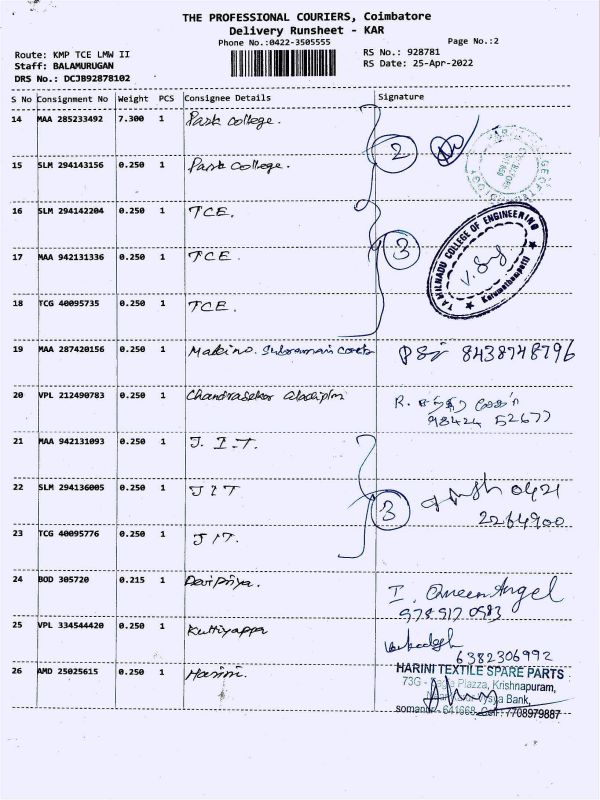 THE PROFESSIONAL COURIERS, Coimbatore
Delivery Runsheet - KAR
Phone No.:0422-3505555
Page No.:2
Route: KMP TCE LMW II
RS No.: 928781
Staff: BALAMURUGAN
RS Date: 25-Apr-2022
DRS No.: DCJB92878102
S No Consignment No Weight PCS Consignee Details Signature
14 MAA 285233492 7.300 1 Park College.
2
15 SLM 294143156 0.250 1 Park College.
16 SLM 294142204 0.250 1 TCE.
TAMILNADU COLLEGE OF ENGINEERING
Karumathampatti
17 MAA 942131336 0.250 1 TCE.
3
18 TCG 40095735 0.250 1 TCE.
19 MAA 287420156 0.250 1 Makino. 8438748796
20 VPL 212490783 0.250 1 Chandrasekar
R.
98424 52677
21 MAA 942131093 0.250 1 J. I.T.
22 SLM 294136005 0.250 1 JIT
3
0421
2264900
23 TCG 40095776 0.250 1 JIT.
24 BOD 305720 0.215 1 Devi Priya.
I. Queen Angel
25 VPL 334544420 0.250 1 Kuttiyappa
6382306992
26 AMD 25025615 0.250 1 Harini.
HARINI TEXTILE SPARE PARTS
73G - Plazza, Krishnapuram,
Vysya Bank,
641668. Cell: 7708979887